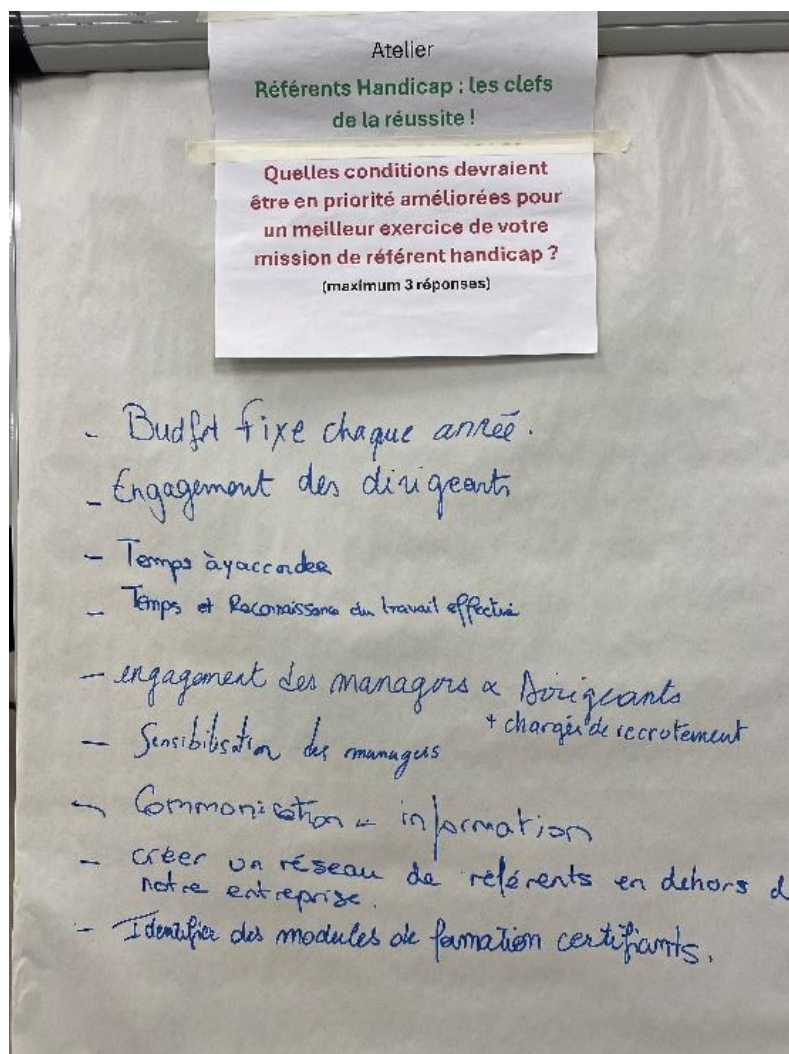 Atelier
Référents Handicap : les clefs
de la réussite !
Quelles conditions devraient
être en priorité améliorées pour
un meilleur exercice de votre
mission de référent handicap ?
(maximum 3 réponses)
- Budget fixe chaque année.
- Engagement des dirigeants
- Temps à y accorder
- Temps et Reconnaissance du travail effectué
- engagement des managers & Dirigeants
+ chargés de recrutement
- Sensibilisation des managers
- Communication - information
- créer un réseau de référents en dehors d
notre entreprise.
- Identifier des modules de formation certifiants.